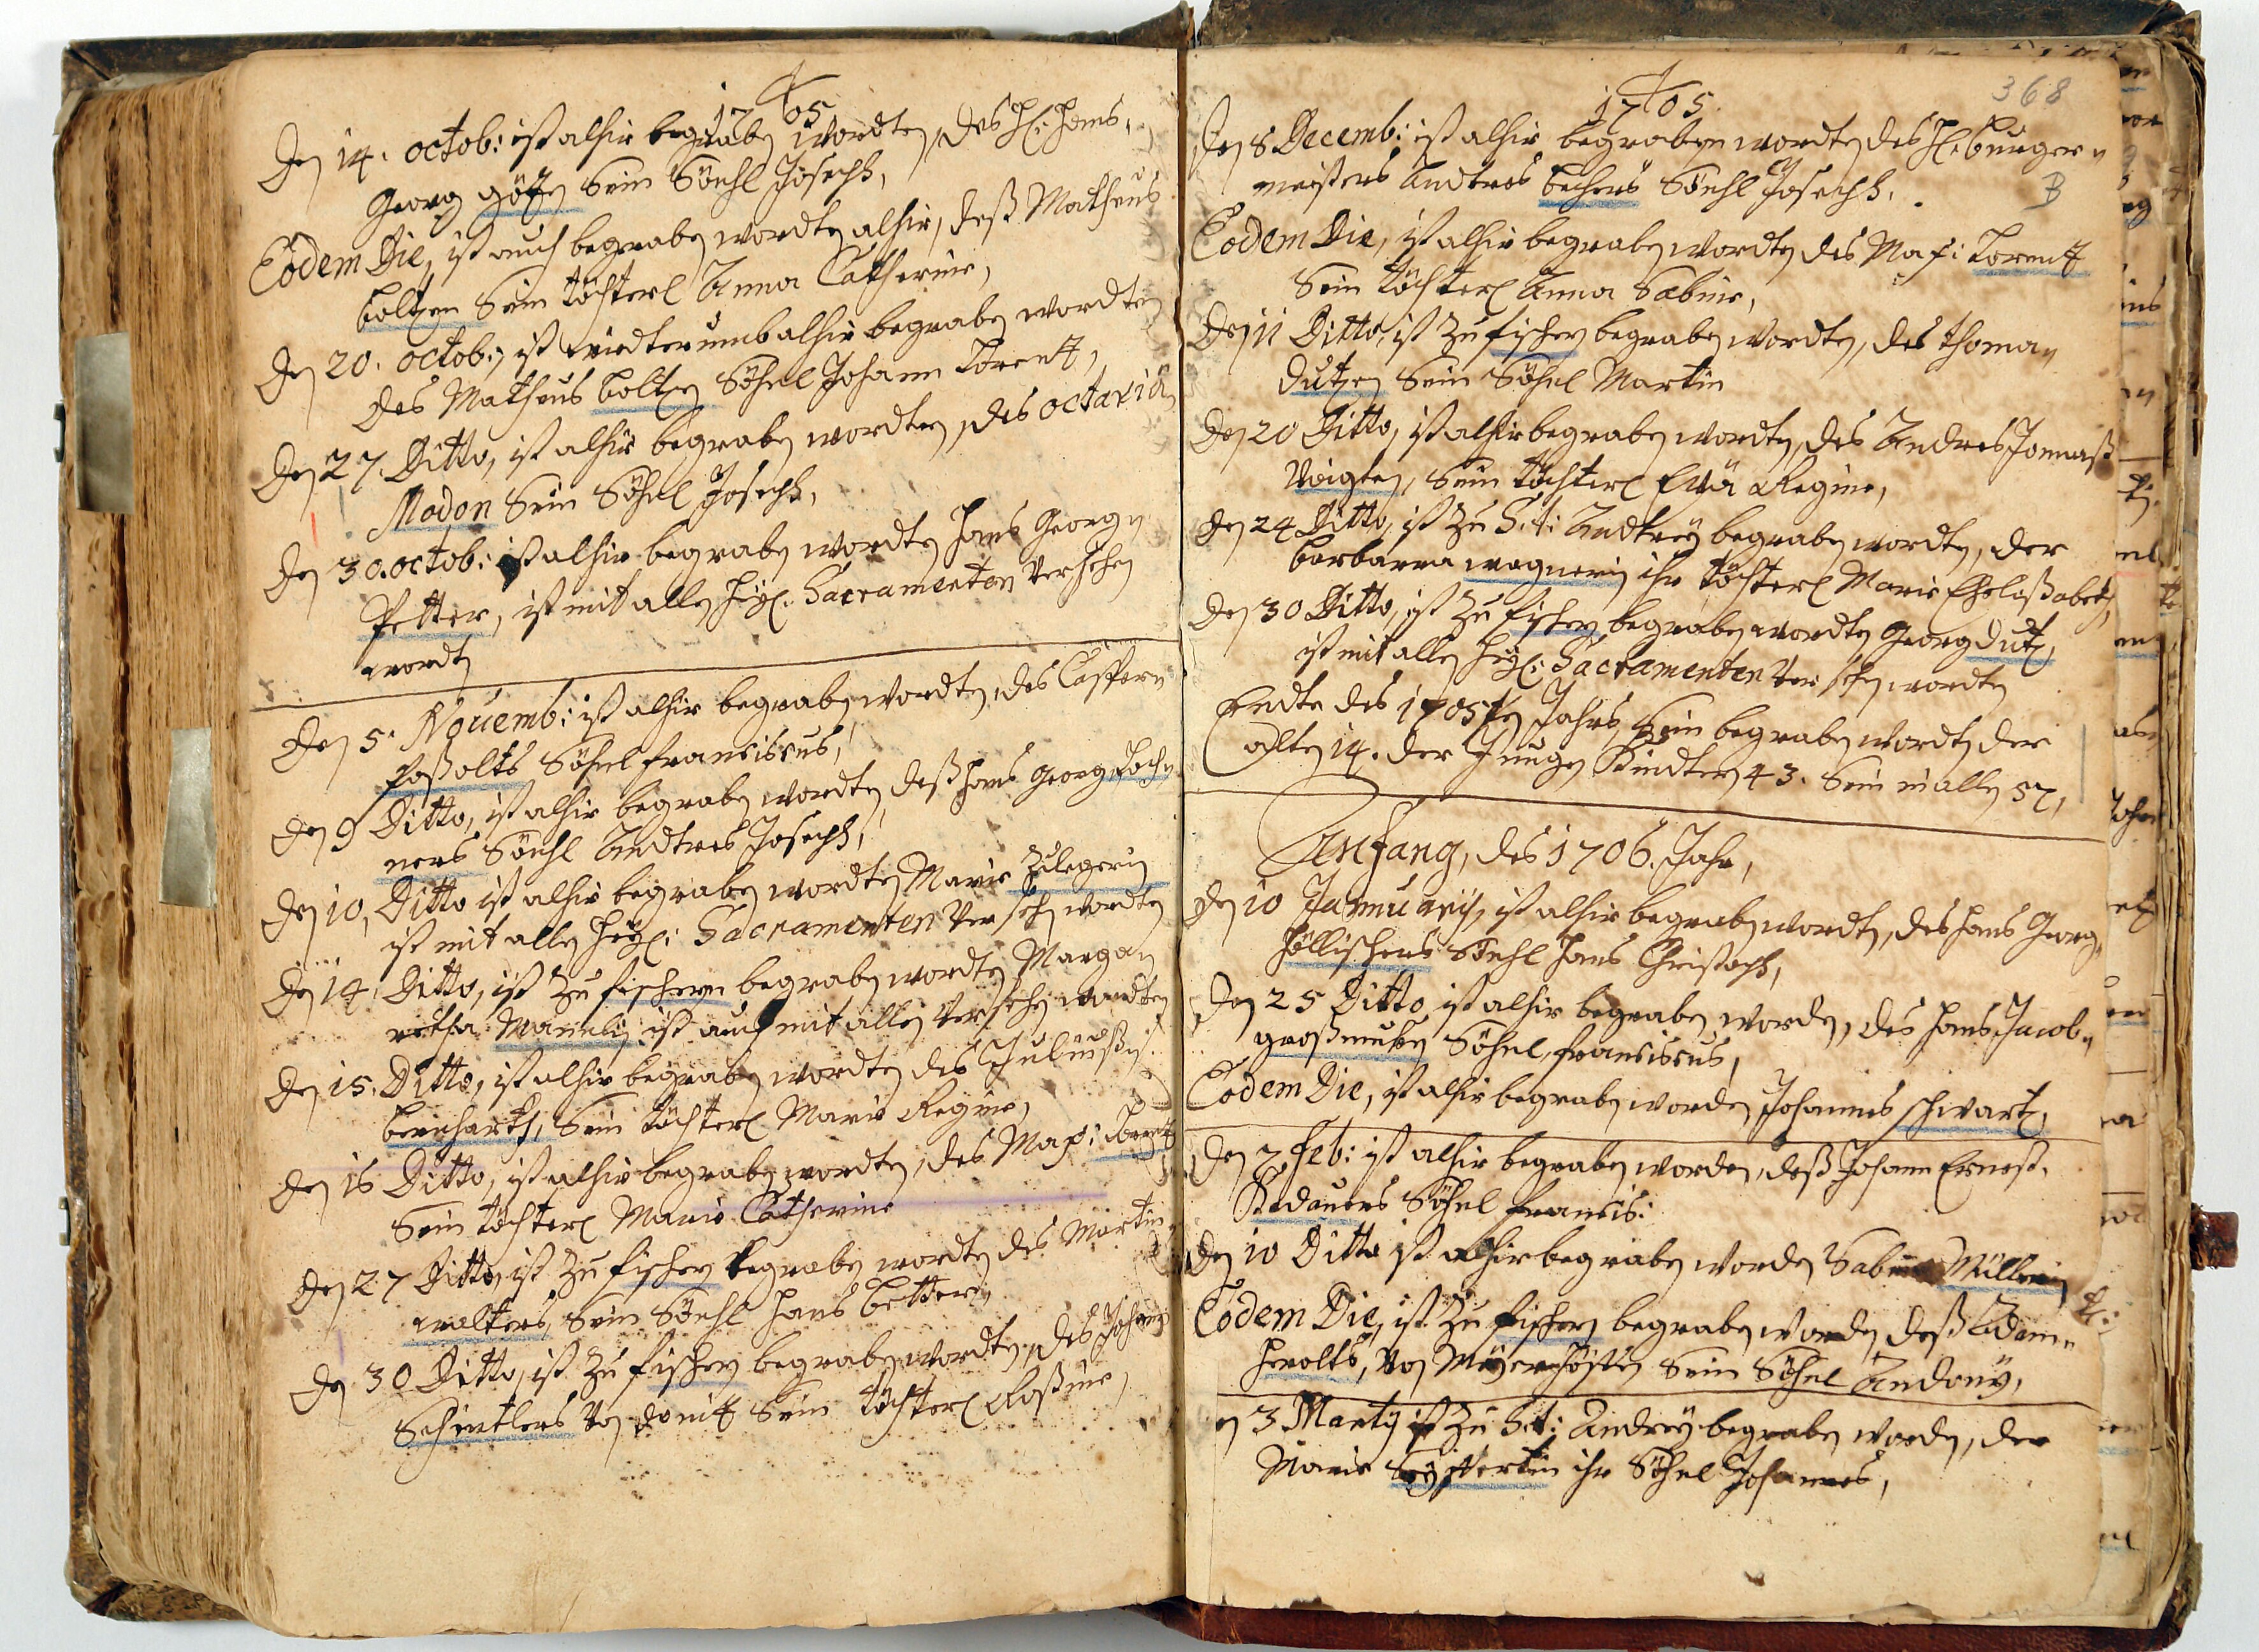 1705
Den 14. octob: ist alhir begraben wordten, des H: Hans
Georg götzen Sein Söehl Joseph,
Eodem Die, ist auch begraben wordten alhir, deß Matheus
boltzen Sein töchterl Anna Catherine,
Den 20. octob: ist wiedterumb alhir begraben wordten
des Matheus boltzen Söhnl Johann Lorentz,
Den 27. Ditto, ist alhir begraben wordten, des octaviā
Modon Sein Söhnl Joseph,
Den 30. octob: ist alhir begraben wordten Hans Georg
Petter, ist mit allen Heyl: Sacramenten versehen
wordten
Den 5. Nouemb: ist alhir begraben wordten, des Casper
Poßolts Söhnl Franciscus,
Den 9 Ditto, ist alhir begraben wordten, deß Hans Georg
ners Söehl Andtres Joseph,
Den 10, Ditto ist alhir begraben wordten Marie Zulegerin
ist mit allen Heyl: Sacramenten versehn wordten
Den 14, Ditto, ist zu fischern begraben wordten Marga
retha ist auch mit allen versehen wordten
Den 15. Ditto, ist alhir begraben wordten des
bernharth, Sein töchterl Marie Regine,
Den 16 Ditto, ist alhir begraben wordten, des Max:
Sein töchterl Marie Catherine
Den 27 Ditto, ist zu fischern begraben wordten des Martin
walters, Sein Söehl Hans
Den 30 Ditto, ist zu fischern begraben wordten, des Johann
Schintlers von donitz Sein töchterl Rosine,
1705.
368
Den 8 Decemb: ist alhir begraben wordten des H: burger
meisters Andtres bechers Söehl Joseph.
B
Eodem Die, ist alhir begraben wordten des Max: Lorentz
Sein töchterl Anna Sabine,
Den 11 Ditto, ist zu fischern begraben wordten, des thoma
dutzen Sein Söhnl Martin
Den 20 Ditto, ist alhir begraben wordten, des Andres
Voigten, Sein töchterl Eva Regine,
Den 24 Ditto, ist zu St: Andtrey begraben wordten, der
barbarra wagnerin ihr töchterl Marie
Den 30 Ditto, ist zu fischern begraben wordten Georg dutz,
ist mit allen Heyl: Sacramenten versehen wordten
Endte des 1705ten Jahrs, Sein begraben wordten der
alten 14. der Jungen Kindter 43. Sein in allen 57,
Anfang, des 1706. Jahr,
Den 10 Januarij, ist alhir begraben wordten, des Hans Georg
Höllischers Söehl Hans Christoph,
Den 25 Ditto, ist alhir begraben worden, des Hans Jacob
Söhnl, Franciscus,
Eodem Die, ist alhir begraben worden Johannes schwartz,
Den 7 Feb: ist alhir begraben worden, deß Johann Ernest
Söhnl Francis:
Den 10 Ditto ist alhir begraben worden Sabina Müllerin
Eodem Die, ist zu fischern begraben worden, deß Adam
Herolts, von Mayerhöfen Sein Söhnl Andony,
3 Marty ist zu St: Andrey begraben worden, der
Marie Seyffertin ihr Söhnl Johannes,